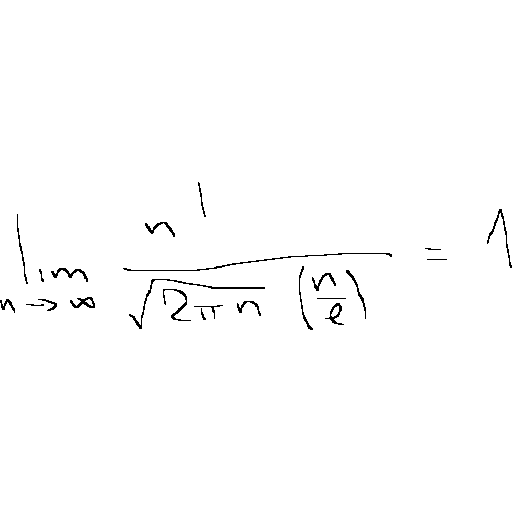 \lim_{n \to \infty} \frac{n^{|}}{\sqrt{2 \pi n} \left( \frac{n}{e} \right)} = 1